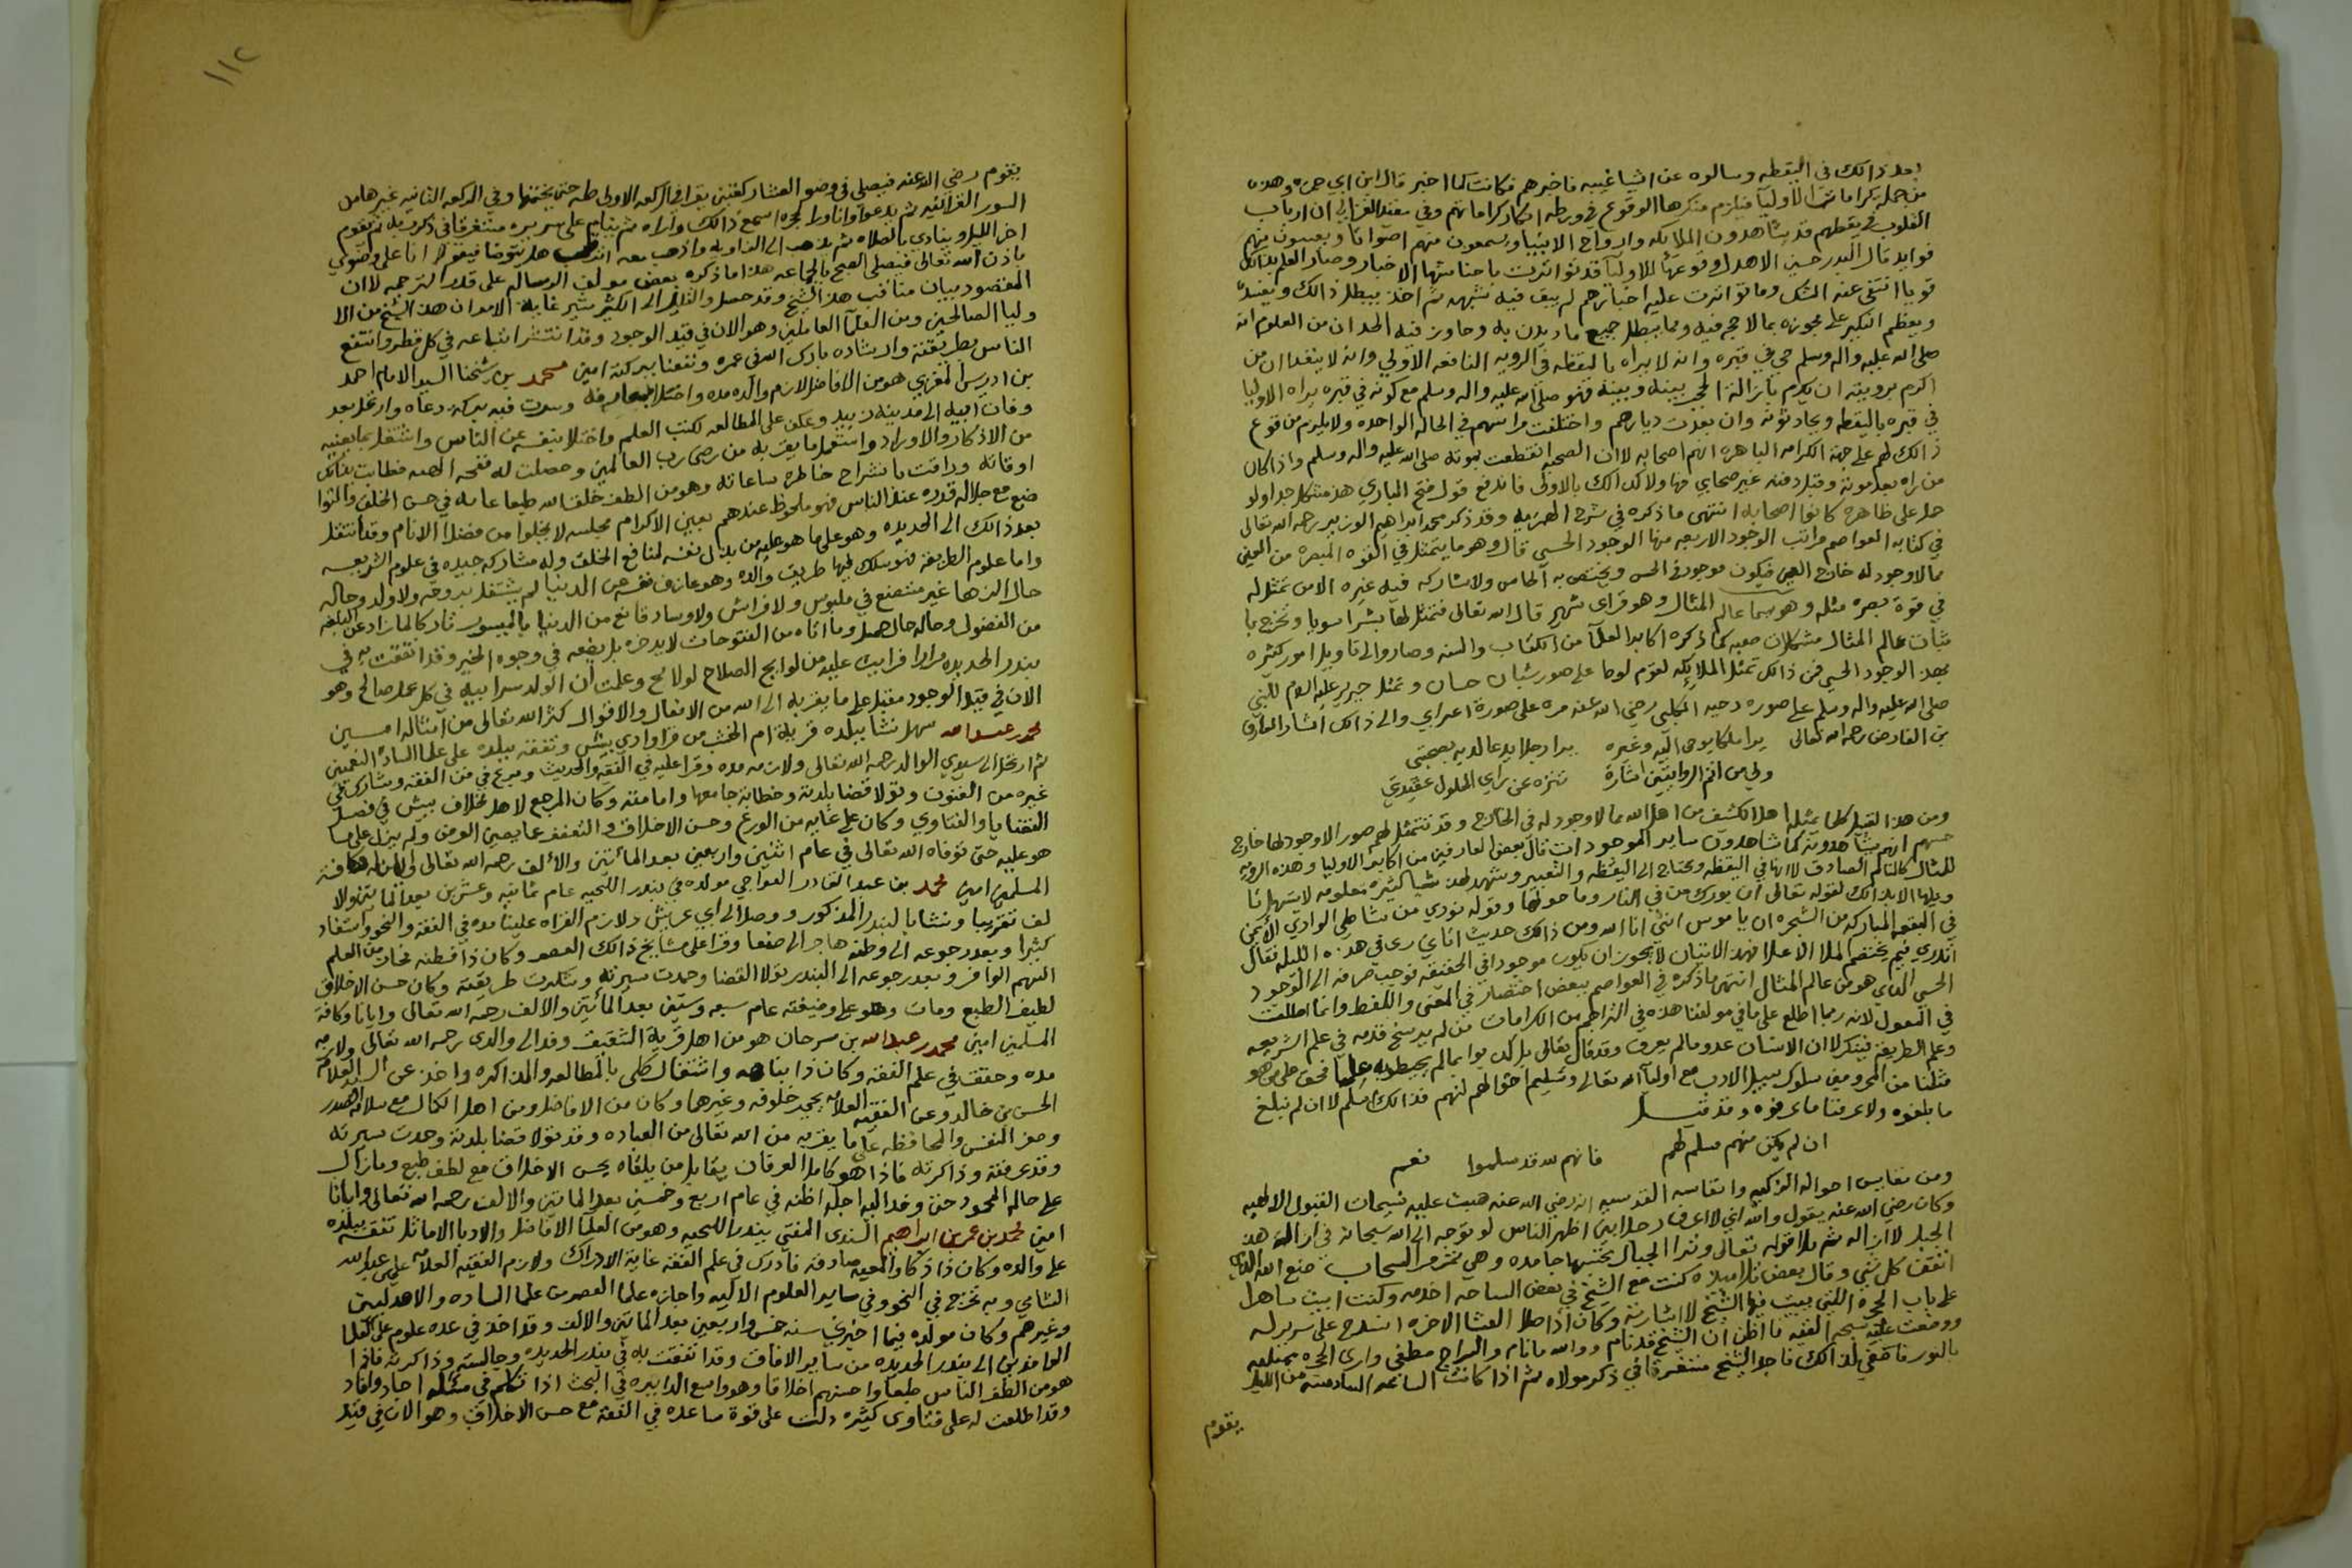 بعد ذالك في اليقظه وسالوه عن اشيا غيبيه فاخبرهم فكانت كما اخبر قال ابن ابي جمره وهذه
من جملة كرامات الاوليآ فيلزم منكرها الوقوع في ورطه انكار كراماتهم وفي منقذ الغزالي ان ارباب
القلوب في يقظتهم قد يشاهدون الملايكه وارواح الانبيا ويسمعون منهم اصواتا ويقتبسون منهم
فوايد قال البدر حسين الاهدل وقوعها للاوليآ قد تواترت باجناسها الاخبار وصار العلم بذالك
قويا انتفى عنه الشك وما تواترت عليه اخبارهم لم يبق فيه شبهه ثم اخذ يبطل ذالك ويفنده
ويعظم النكير على مجوزه بما لا حجه فيه ومما يبطل جميع ما
صلى الله عليه واله وسلم حي في قبره وانه لا يراه باليقظه في الرويه النافعه الاولي وانه لا
اكرم برويته ان يكرم بازالة الحجب بينه وبينه فهو صلى الله عليه واله وسلم مع كونه في قبره يراه الاوليا
في قبره باليقظه ويحادثونه وان بعدت ديارهم واختلفت مراتبهم في الحاله الواحده ولا يلزم من وقوع
ذالك لهم على جهة الكرامه الباهره انهم اصحابه لان الصحبه انقطعت بموته صلى الله عليه واله وسلم واذا كان
من راه بعد موته وقبل دفنه غير صحابي فهاولا كذالك بالاولى فاندفع قول فتح الباري هذ مشكل جدا ولو
حمل على ظاهره كانوا اصحابه انتهى ما ذكره في شرح الهمزيه وقد ذكر محمد ابراهيم الوزير رحمه الله تعالى
في كتابه العواصم مراتب الوجود الاربعه منها الوجود الحسي قال وهو ما يتمثل في القوه المبصره من العين
مما لا وجود له خارج العين فيكون موجود في الحس ويختص به الحاس ولا يشاركه فيه غيره الا من تمثل له
في قوة بصره مثله وهو سما عالم المثال وهو قراى شهير قال الله تعالى فتمثل لها بشرا سويا ونخرج با
ثبات عالم المثال مشكلات صعبه كما ذكره اكابر العلمآ من الكتاب والسنه وصار والى تاويل امور كثيره
بهذ الوجود الحسي فمن ذالك تمثل الملايكه لقوم لوط على صور شبان حسان وتمثل جبريل عليه السلام للنبي
صلى الله عليه واله وسلم على صوره دحيه الكلبي رضي الله عنه مره على صورة اعرابي والى ذالك اشار العارف
بن الفارض رحمه الله تعالى يرا ملكا يوحى اليه وغيره يرا رجلا يدعا لديه بصحبتي
ولي من اتم الروايتين اشارة تنزه عن راي الحلول عقيدتي
ومن هذ القبيل كلما يمثله اهل الكشف من اهل الله مما لا وجود له في الخارج وقد تتمثل لهم صور لا وجود لها خارج
حسهم انهم يشاهدونه كما شاهدون ساير الموجودات قال بعض العارفين من اكابر الاوليا وهذه الرويه
للمثال كالنايم الصادق الا انها في اليقظه وتحتاج الى اليقظه والتعبير ويشهد لهذ شيا كثيره معلومه
لقوله تعالى ان بورك من في النار وما حولها وقوله نودي من شاطي الوادي الايمن
في البقعه المباركه من الشجره ان يا موسى اني انا الله ومن ذالك حديث اتاني ربي في هذه الليله فقال
اتدري فيم يختصم الملا الاعلا فهذ الاتيان لا يجوز ان يكون موجودا في الحقيقه فوجب صرفه الى الوجود
الحسي الذي هو من عالم المثال انتهى ما ذكره في العواصم ببعض اختصار في المعنى واللفظ وانما اطلت
في النقول لانه ربما اطلع على ما في مولفنا هذه في التراجم من الكرامات من لم يرسخ قدمه في علم الشريعه
وعلم الطريقه فينكر لان الانسان عدو ما لم يعرف وقد قال تعالى بل كذبوا بما لم يحيطوا بعلمه فحق على من هو
مثلنا من المحرومين سلوك سبيل الادب مع اوليآ الله تعالى وتسليم احوالهم لهم فذالك اسلم لان لم نبلغ
ما بلغوه ولا عرفنا ما عرفوه وقد قيل
ان لم تكن منهم مسلم لهم فانهم لله قد سلموا نعم
ومن نفايس احواله الزكيه وانفاسه القدسيه انه رضي الله عنه هبت عليه نسيمات القبول الالهيه
وكان رضي الله عنه يقول والله اني لا اعرف رجلا بين اظهر الناس لو توجه الى الله سبحانه في ازالة هذ
الجبل لازاله ثم تلا قوله تعالى وترا الجبال تحسبها جامده وهي تمر مر السحاب صنع الله الذي
اتقن كل شي وقال بعض تلاميذه كنت مع الشيخ في بعض السياحه اخدمه وكنت ابيت
على باب الحجره اللتي يبيت فيها الشيخ لا اشارته وكان اذا صلا العشا الاخره انسدح على سرير له
ووضعت عليه الفقه ما اظن ان الشيخ قد نام ووالله ما نام والسراج مطفي وارى الحجره ممتليه
بالنور فاصغي لذالك فاجد الشيخ مستغرقا في ذكر مولاه ثم اذا كانت الساعه السادسه من الليل
يقوم
١١٢
يقوم رضي الله عنه فيصلي في وضو العشا ركعتين يقرا في الركعه الاولى طه حتى يختمها وفي الركعه الثانيه غيرها من
السور القرانيه ثم يدعو وانا ورا الحجره اسمع ذالك واراه ثم ينام على سريره مستغرقا في ذكر ربه ثم يقوم
اخر الليل وينادي بالصلاه ثم يذهب الى الزاويه واذهب معه هل تتوضا فيقول انا على وضوي
باذن الله تعالى فيصلي الصبح بالجماعه هذا ما ذكره بعض مولف الرساله على قدر الترجمه لان
المقصود بيان مناقب هذ الشيخ وقد حصل والقليل الى الكثير يشير غاية الامر ان هذ الشيخ من الا
وليا الصالحين ومن العلمآ العاملين وهو الان في قيد الوجود وقد انتشر اتباعه في كل قطر وانتفع
الناس بطريقته وارشاده بارك الله في عمره ونفعنا ببركته امين محمد بن شيخنا السيد الامام احمد
بن ادريس المغربي هو من الافاضل لازم والده مده واختلا بمعارفه وسرت فيه بركة دعاه وارتحل بعد
وفات ابيه الى مدينة زبيد وعكف على المطالعه لكتب العلم واختلا بنفسه عن الناس واشتغل بما يعنيه
من الاذكار والاوراد واستعمل ما يقربه من رضى رب العالمين وحصلت له نفحه الهيه فطابت بذالك
اوقاته وراقت بانشراح خاطره ساعاته وهو من الطف خلق الله طبعا غايه في حسن الخلق والتوا
ضع مع جلالة قدره عند الناس فهو ملحوظ عندهم بعين الاكرام مجلسه لا يخلوا من فضلآ الانام وقد انتقل
بعد ذالك الى الحديده وهو على ما هو عليه من بذل نفسه لمنافع الخلق وله مشاركه جيده في علوم الشريعه
واما علوم الطريقه فهو سلك فيها طريق والده وهو عازف نفسه عن الدنيا لم يشتغل بزوجه ولا ولد وحاله
حال الزها غير متصنع في ملبوس ولا فراش ولا وساد قانع من الدنيا بالميسور تارك لما زاد عن البلغه
من الفضول وحاله حال جميل وما اتاه من الفتوحات لا يدخره بل يضعه في وجوه الخير وقد اتفقت به في
بندر الحديده مرارا فرايت عليه من لوايح الصلاح لولائح وعلمت ان الولد سر ابيه في كل عمل صالح وهو
الان في قيد الوجود مقبل على ما يقربه الى الله من الافعال والاقوال كثر الله تعالى من امثاله امـين
محمد عبد الله سهل نشا ببلده قرية ام الخشب من قرا وادي بيش وتفقه ببلده على علما الساده النعميين
ثم ارتحل الى سيدي الوالد رحمه الله تعالى ولازمه مده وقرا عليه في الفقه والحديث وبرع في فن الفقه وشارك في
غيره من الفنون وتولا قضا بلدته وخطابة جامعها وامامته وكان المرجع لاهل مخلاف بيش في فصل
القضايا والفتاوي وكان على غايه من الورع وحسن الاخلاق والتعفف عما يصين العرض ولم يزل على ما
هو عليه حتى توفاه الله تعالى في عام اثنين واربعين بعد المأتين والألف رحمه الله تعالى وايانا وكافة
المسلمين امين محمد بن عبد القادر العواجي مولده في بندر اللحيه عام ثمانيه وعشرين بعد الما تين والا
لف تقريبا ونشا بالبندر المذكور ووصل الى ابي عريش ولازم القراه علينا مده في الفقه والنحو واستفاد
كثيرا وبعد رجوعه الى وطنه هاجر الى صنعا وقرا على مشايخ ذالك العصر وكان ذا فطنه فحاز من العلم
السهم الوافر وبعد رجوعه الى البندر تولا القضا وحمدت سيرته وشكرت طريقته وكان حسن الاخلاق
لطيف الطبع ومات وهو على وضيفته عام سبعه وستين بعد المأتين والالف رحمه الله تعالى وايانا وكافة
المسلمين امين محمد عبد الله بن سرحان هو من اهل قرية الشقيق وفد الى والدي رحمه الله تعالى ولازمه
مده وحقق في علم الفقه وكان ذا نباهه واشتغال كلي بالمطالعه والمذاكره واخذ عن السيد العلامه
الحسن بن خالد وعن الفقيه العلامه يحيى خلوفه وغيرهما وكان من الافاضل ومن اهل الكمال مع سلامة الصدر
وعز النفس والمحافظه على ما يقربه من الله تعالى من العباده وقد تولا قضا بلدته وحمدت سيرته
وقد عرفته وذاكرته فاذا هو كامل العرفان يقابل من يلقاه بحسن الاخلاق مع لطف طبع ومازال
على حاله المحمود حتى وفد اليه اجله اظنه في عام اربع وخمسين بعد الماتين والالف رحمه الله تعالى وايانا
امين محمد بن عمر بن ابراهيم السندي المفتي ببندر اللحيه وهو من العلمآ الافاضل والادبا الاماثل تفقه ببلده
على والده وكان ذا ذكا والمعيه صادقه فادرك في علم الفقه غاية الادراك ولازم الفقيه العلامه علي عبد الله
الشامي وبه تخرج في النحو وفي ساير العلوم الاليه واجازه علما العصر من علما الساده والاهدليين
وغيرهم وكان مولده فيما اخبرني سنه خمس واربعين بعد المأتين والالف وقد اخذ في عده علوم على العلما
الوافدين الى بندر الحديده من ساير الافاق وقد اتفقت به في بندر الحديده وجالسته وذاكرته فاذا
هو من الطف الناس طبعا واحسنهم اخلاقا وهو واسع الدايره في البحث اذا تكلم في مسئله اجاد وافاد
وقد اطلعت له على فتاوى كثيره دلت على قوة ساعده في الفقه مع حسن الاخلاق وهو الان في قيد